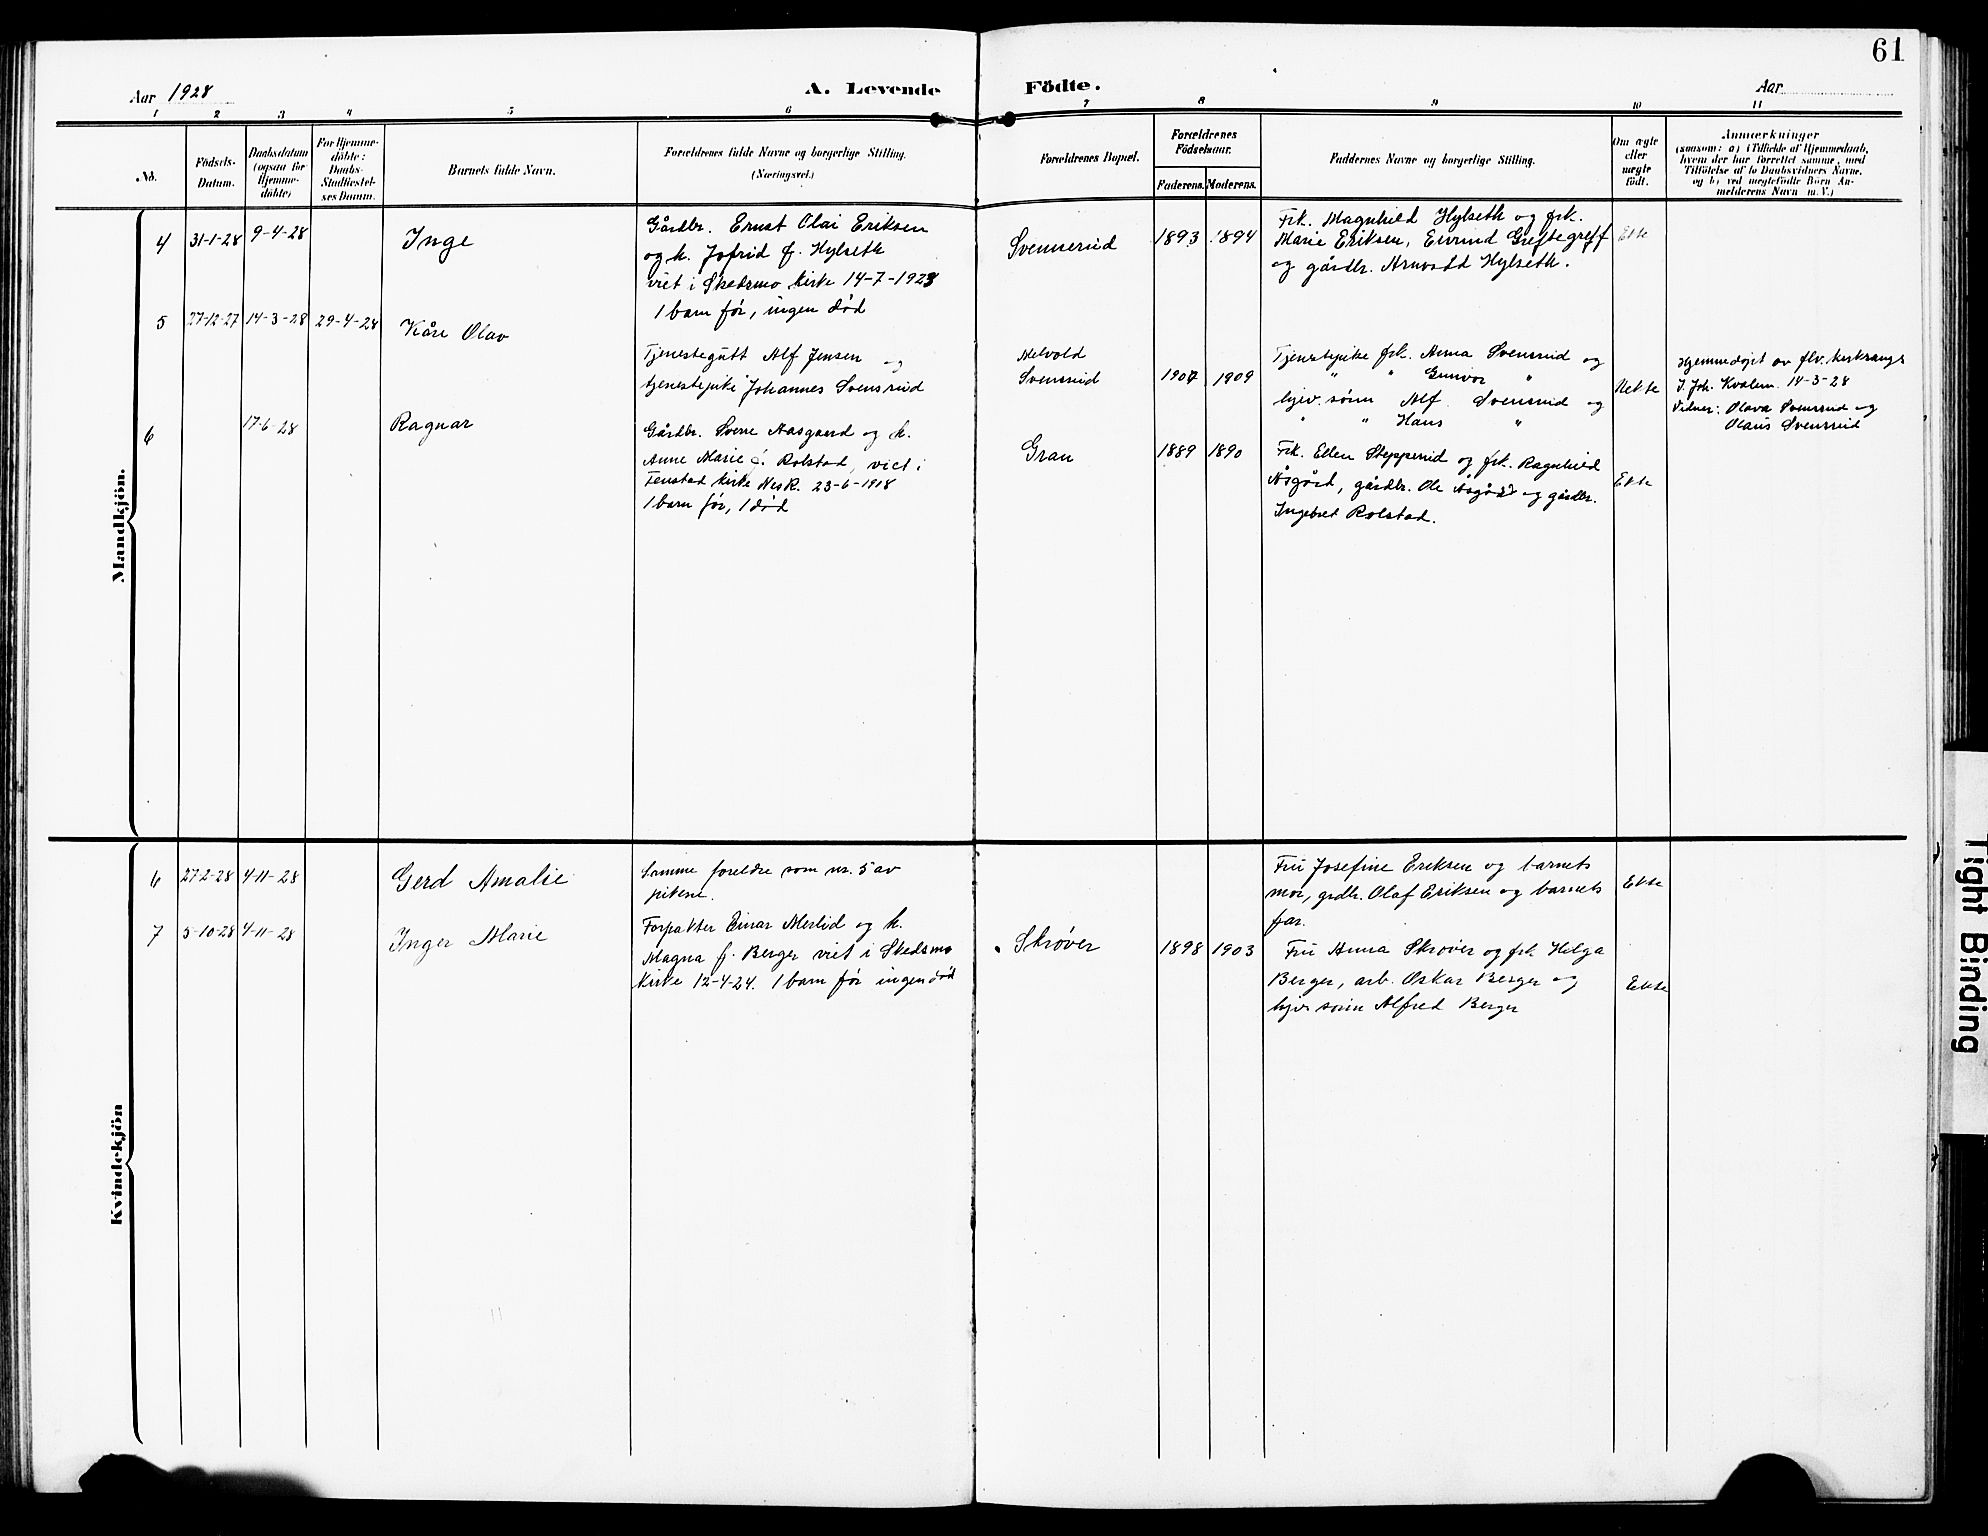 61
Aar 1928
A. Levende Födte.
Aar
1 2 3 4 5 6 7 8 9 10 11
No.
Födsels-
Datum.
Daabsdatum
(ogsaa for
Hjemme-
döbte)
For Hjemme-
döbte:
Daabs-
Stadfæstel-
ses Datum.
Barnets fulde Navn.
Forældrenes fulde Navne og borgerlige Stilling.
(Næringsvei.)
Forældrenes Bopæl.
Forældrenes
Födselsaar.
Faderens. Moderens.
Faddernes Navne og borgerlige Stilling.
Om ægte
eller
uægte
født.
Anmærkninger
(saasom: a) i Tilfælde af Hjemmedaab,
hvem der har forrettet samme, med
Tilföielse af to Daabsvidners Navne.
og b) ved uægtefödte Börn An-
melderens Navn m. V.)
Mandkjön.
4 31-1-28 9-4-28
Inge
Gårdbr. Ernst Olai Eriksen
og h. Jofrid f. Hylseth
viet i Skedsmo kirke 14-7-1923
1 barn før, ingen død
Svenserud
1893 1894
Frk. Magnhild Hylseth og frk.
Marie Eriksen, Eivind Greftegreff
og gårdbr. Arnvold Hylseth.
Ekte
5 27-12-27 14-3-28 29-4-28
Kåre Olav
Tjenestegutt Alf Jensen og
tjenestepike Johannes Svensrud
Melvold
Svensrud
1907 1909
Tjenestepike frk. Anna Svensrud og
" " Gunvor "
hjev. sønn Alf Svensrud og
" " Hans "
Uekte
Hjemmedøpt av flv. kirkesangr
J. Joh. Kvalem 14-3-28
Vidner: Olava Svensrud og
Olaus Svensrud
6 17-6-28
Ragnar
Gårdbr. Sverre Aasgaard og h.
Anne Marie f. Rolstad, viet i
Fenstad kirke Nes R. 23-6-1918
1 barn før, 1 død
Gran
1889 1890
Frk. Ellen Stepperud og frk. Ragnhild
Åsgård, gårdbr. Ole Åsgård og gårdbr.
Ingebret Rolstad.
Ekte
Kvindekjön
6 27-2-28 4-11-28
Gerd Amalie
Samme foreldre som nr. 5 av
pikene.
Fru Josefine Eriksen og barnets
mor, grdbr. Olaf Eriksen og barnets
far.
Ekte
7 5-10-28 4-11-28
Inger Marie
Forpakter Einar Merlid og h.
Magna f. Berger viet i Skedsmo
Kirke 12-4-24. 1 barn før ingen død
Skrøver
1898 1903
Fru Anna Skrøver og frk Helga
Berger, arb. Oskar Berger og
hjv sønn Alfred Berger
Ekte
Tight Binding